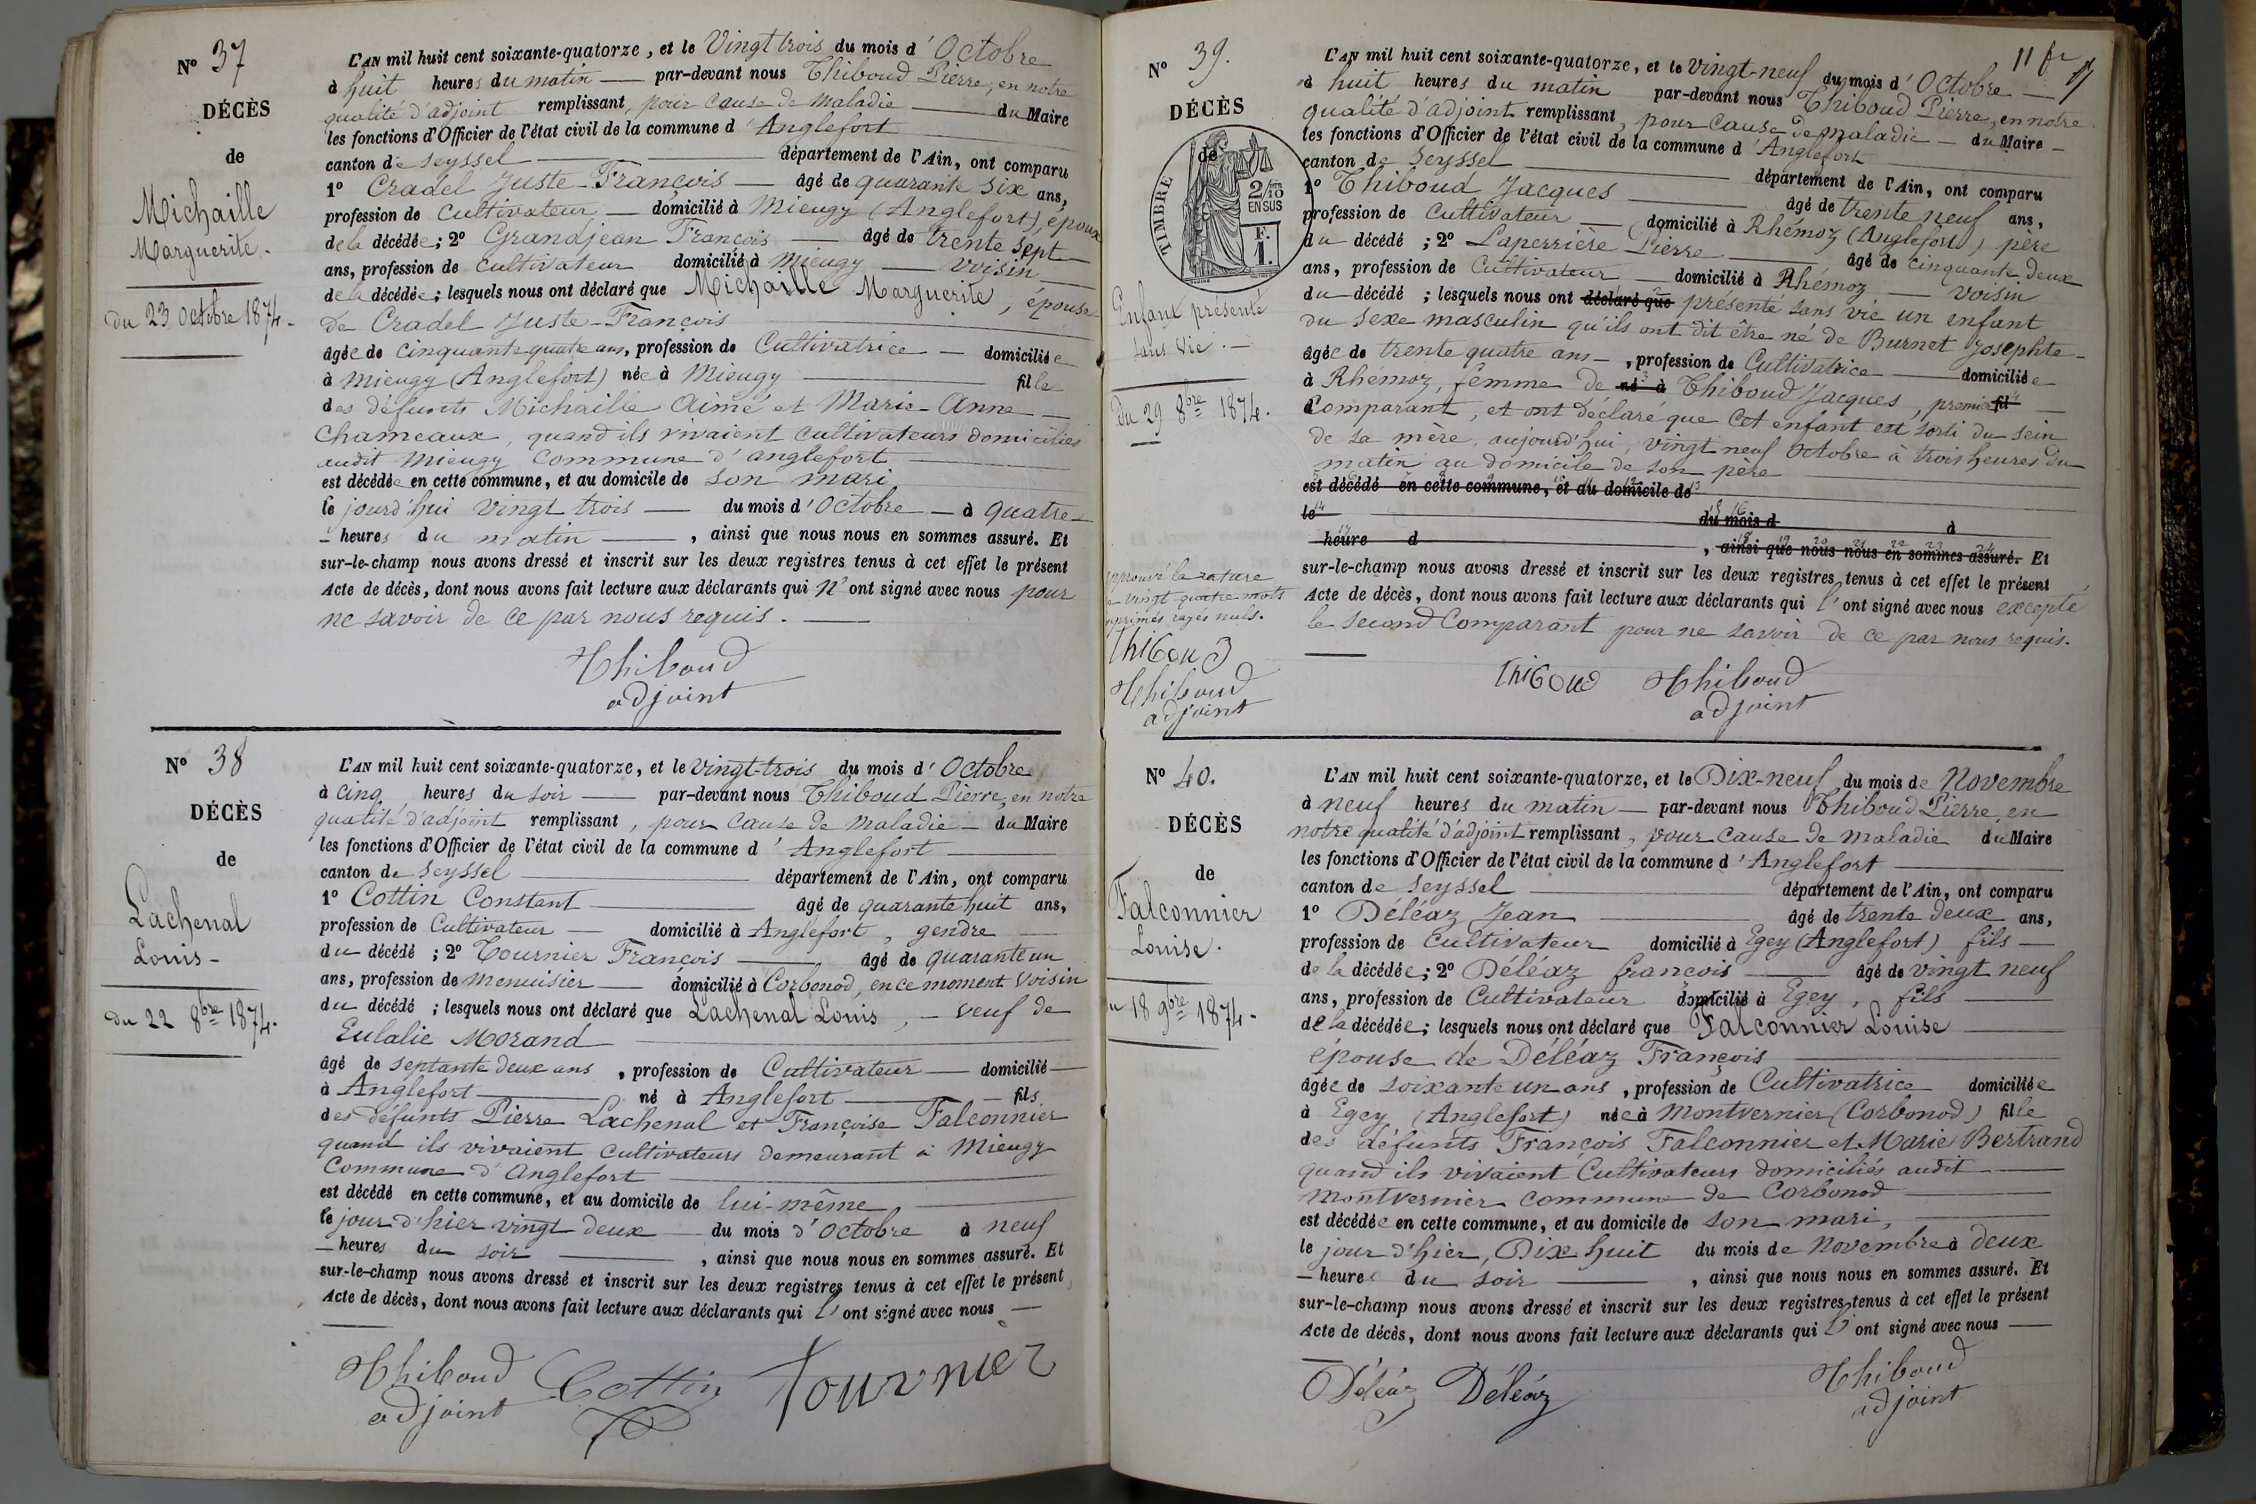 N° 37
DÉCÈS
de
Michaille
Marguerite.
du 23 octobre 1874.
L'AN mil huit cent soixante-quatorze, et le Vingt trois du mois d'Octobre
à huit heures du matin — par-devant nous Thiboud Pierre, en notre
qualité d'adjoint remplissant, pour cause de maladie — du Maire
les fonctions d'Officier de l'état civil de la commune d'Anglefort
canton de Seyssel — département de l'Ain, ont comparu
1° Cradel Juste-François — âgé de quarante six ans,
profession de Cultivateur — domicilié à Mieugy (Anglefort), époux
de la décédée; 2° Grandjean François — âgé de trente sept
ans, profession de cultivateur domicilié à Mieugy — voisin
de la décédée; lesquels nous ont déclaré que Michaille Marguerite, épouse
de Cradel Juste-François
âgée de cinquante quatre ans, profession de Cultivatrice — domiciliée
à Mieugy (Anglefort) née à Mieugy — fille
des défunts Michaille Aimé et Marie-Anne —
Chameaux, quand ils vivaient cultivateurs domiciliés
audit Mieugy Commune d'anglefort
est décédée en cette commune, et au domicile de son mari
le jourd'hui vingt trois — du mois d'Octobre — à quatre
— heures du matin — , ainsi que nous nous en sommes assuré. Et
sur-le-champ nous avons dressé et inscrit sur les deux registres tenus à cet effet le présent
Acte de décès, dont nous avons fait lecture aux déclarants qui n'ont signé avec nous pour
ne savoir de ce par nous requis. —
Thiboud
adjoint
N° 38
DÉCÈS
de
Lachenal
Louis -
du 22 8bre 1874.
L'AN mil huit cent soixante-quatorze, et le Vingt-trois du mois d'Octobre
à cinq heures du soir — par-devant nous Thiboud Pierre, en notre
qualité d'adjoint remplissant, pour cause de maladie — du Maire
les fonctions d'Officier de l'état civil de la commune d'Anglefort —
canton de Seyssel — département de l'Ain, ont comparu
1° Cottin Constant — âgé de quarante huit ans,
profession de Cultivateur — domicilié à Anglefort, gendre —
du décédé; 2° Tournier François — âgé de quarante un
ans, profession de menuisier — domicilié à Corbonod, en ce moment voisin
du décédé; lesquels nous ont déclaré que Lachenal Louis, — veuf de
Eulalie Morand —
âgé de septante deux ans, profession de Cultivateur — domicilié —
à Anglefort — né à Anglefort — fils
des défunts Pierre Lachenal et Françoise Falconnier
quand ils vivaient cultivateurs demeurant à Mieugy
Commune d'Anglefort —
est décédé en cette commune, et au domicile de lui-même —
le jour d'hier vingt deux — du mois d'Octobre à neuf
— heures du soir — , ainsi que nous nous en sommes assuré. Et
sur-le-champ nous avons dressé et inscrit sur les deux registres tenus à cet effet le présent
Acte de décès, dont nous avons fait lecture aux déclarants qui l'ont signé avec nous —
Thiboud Cottin Tournier
adjoint
11 fr
N° 39.
DÉCÈS
de
TIMBRE
2/10
EN SUS
F.
1.
Enfant présenté
sans vie. —
du 29 8bre 1874.
L'AN mil huit cent soixante-quatorze, et le vingt-neuf du mois d'Octobre —
à huit heures du matin par-devant nous Thiboud Pierre, en notre
qualité d'adjoint remplissant, pour cause de maladie — du Maire —
les fonctions d'Officier de l'état civil de la commune d'Anglefort
canton de Seyssel — département de l'Ain, ont comparu
1° Thiboud Jacques — âgé de trente neuf ans,
profession de Cultivateur — domicilié à Rhémoz (Anglefort) père
du décédé; 2° Laperrière Pierre — âgé de cinquante deux
ans, profession de Cultivateur — domicilié à Rhémoz — voisin
du décédé; lesquels nous ont déclaré que présenté sans vie un enfant
du sexe masculin qu'ils ont dit être né de Burnet Josephte -
âgée de trente quatre ans —, profession de Cultivatrice — domiciliée
à Rhémoz, femme de né à Thiboud Jacques, premier fil
Comparant, et ont déclaré que cet enfant est sorti du sein
de sa mère, aujourd'hui, vingt neuf Octobre à trois heures du
matin au domicile de son père
est décédé en cette commune, et au domicile de
le — du mois d — à
heure d — , ainsi que nous nous en sommes assuré. Et
sur-le-champ nous avons dressé et inscrit sur les deux registres tenus à cet effet le présent
Acte de décès, dont nous avons fait lecture aux déclarants qui l'ont signé avec nous excepté
le second Comparant pour ne savoir de ce par nous requis.
la rature
vingt quatre mots
rayés nuls.
Thiboud
Thiboud
adjoint
Thiboud Thiboud
adjoint
N° 40.
DÉCÈS
de
Falconnier
Louise.
du 18 9bre 1874.
L'AN mil huit cent soixante-quatorze, et le Dix-neuf du mois de Novembre
à neuf heures du matin — par-devant nous Thiboud Pierre, en
notre qualité d'adjoint remplissant, pour cause de maladie du Maire
les fonctions d'Officier de l'état civil de la commune d'Anglefort —
canton de Seyssel — département de l'Ain, ont comparu
1° Déléaz Jean — âgé de trente deux ans,
profession de Cultivateur domicilié à Egey (Anglefort) fils —
de la décédée; 2° Déléaz françois — âgé de vingt neuf
ans, profession de Cultivateur domicilié à Egey, fils —
de la décédée; lesquels nous ont déclaré que Falconnier Louise —
épouse de Déléaz François —
âgée de soixante un ans, profession de Cultivatrice domiciliée
à Egey (Anglefort) née à Montvernier (Corbonod) fille
des défunts François Falconnier et Marie Bertrand
quand ils vivaient Cultivateurs domiciliés audit —
Montvernier commune de Corbonod —
est décédée en cette commune, et au domicile de son mari, —
le jour d'hier, Dix huit du mois de Novembre à deux
— heures du soir — , ainsi que nous nous en sommes assuré. Et
sur-le-champ nous avons dressé et inscrit sur les deux registres tenus à cet effet le présent
Acte de décès, dont nous avons fait lecture aux déclarants qui l'ont signé avec nous —
Déléaz Déléaz Thiboud
adjoint